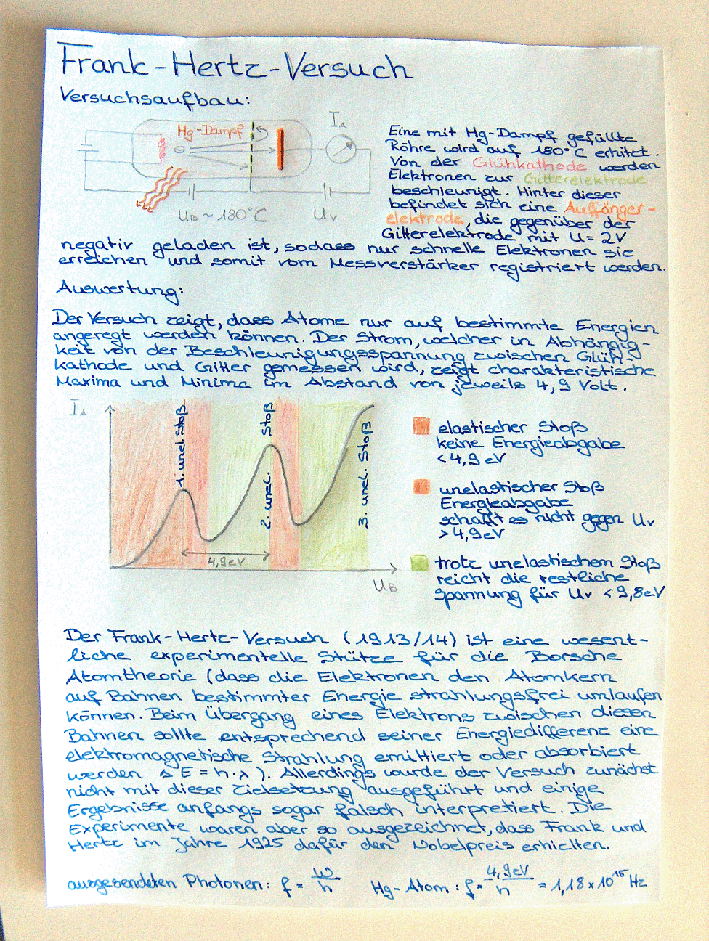 Frank-Hertz-Versuch
Versuchsaufbau:
Hg-Dampf
I_A
U_B ~ 180°C
U_V
Eine mit Hg-Dampf gefüllte
Röhre wird auf 180°C erhitzt.
Von der Glühkathode werden
Elektronen zur Gitterelektrode
beschleunigt. Hinter dieser
befindet sich eine Auffänger-
elektrode, die gegenüber der
Gitterelektrode mit U= 2V
negativ geladen ist, sodass nur schnelle Elektronen sie
erreichen und somit vom Messverstärker registriert werden.
Auswertung:
Der Versuch zeigt, dass Atome nur auf bestimmte Energien
angeregt werden können. Der Strom, welcher in Abhängig-
keit von der Beschleunigungsspannung zwischen Glüh-
kathode und Gitter gemessen wird, zeigt charakteristische
Maxima und Minima im Abstand von jeweils 4,9 Volt.
I_A
1. unel. Stoß
2. unel. Stoß
3. unel. Stoß
4,9eV
U_B
elastischer Stoß
keine Energieabgabe
< 4,9 eV
unelastischer Stoß
Energieabgabe
schafft es nicht gegen U_V
> 4,9eV
trotz unelastischem Stoß
reicht die restliche
Spannung für U_V < 9,8eV
Der Frank-Hertz-Versuch (1913/14) ist eine wesent-
liche experimentelle Stütze für die Borsche
Atomtheorie (dass die Elektronen den Atomkern
auf Bahnen bestimmter Energie strahlungsfrei umlaufen
können. Beim Übergang eines Elektrons zwischen diesen
Bahnen sollte entsprechend seiner Energiedifferenz eine
elektromagnetische Strahlung emittiert oder absorbiert
werden ΔE = h·λ). Allerdings wurde der Versuch zunächst
nicht mit dieser Zielsetzung ausgeführt und einige
Ergebnisse anfangs sogar falsch interpretiert. Die
Experimente waren aber so ausgezeichnet, dass Frank und
Hertz im Jahre 1925 dafür den Nobelpreis erhielten.
ausgesendeten Photonen: f = W/h Hg-Atom: f = 4,9eV/h = 1,18 x 10^15 Hz